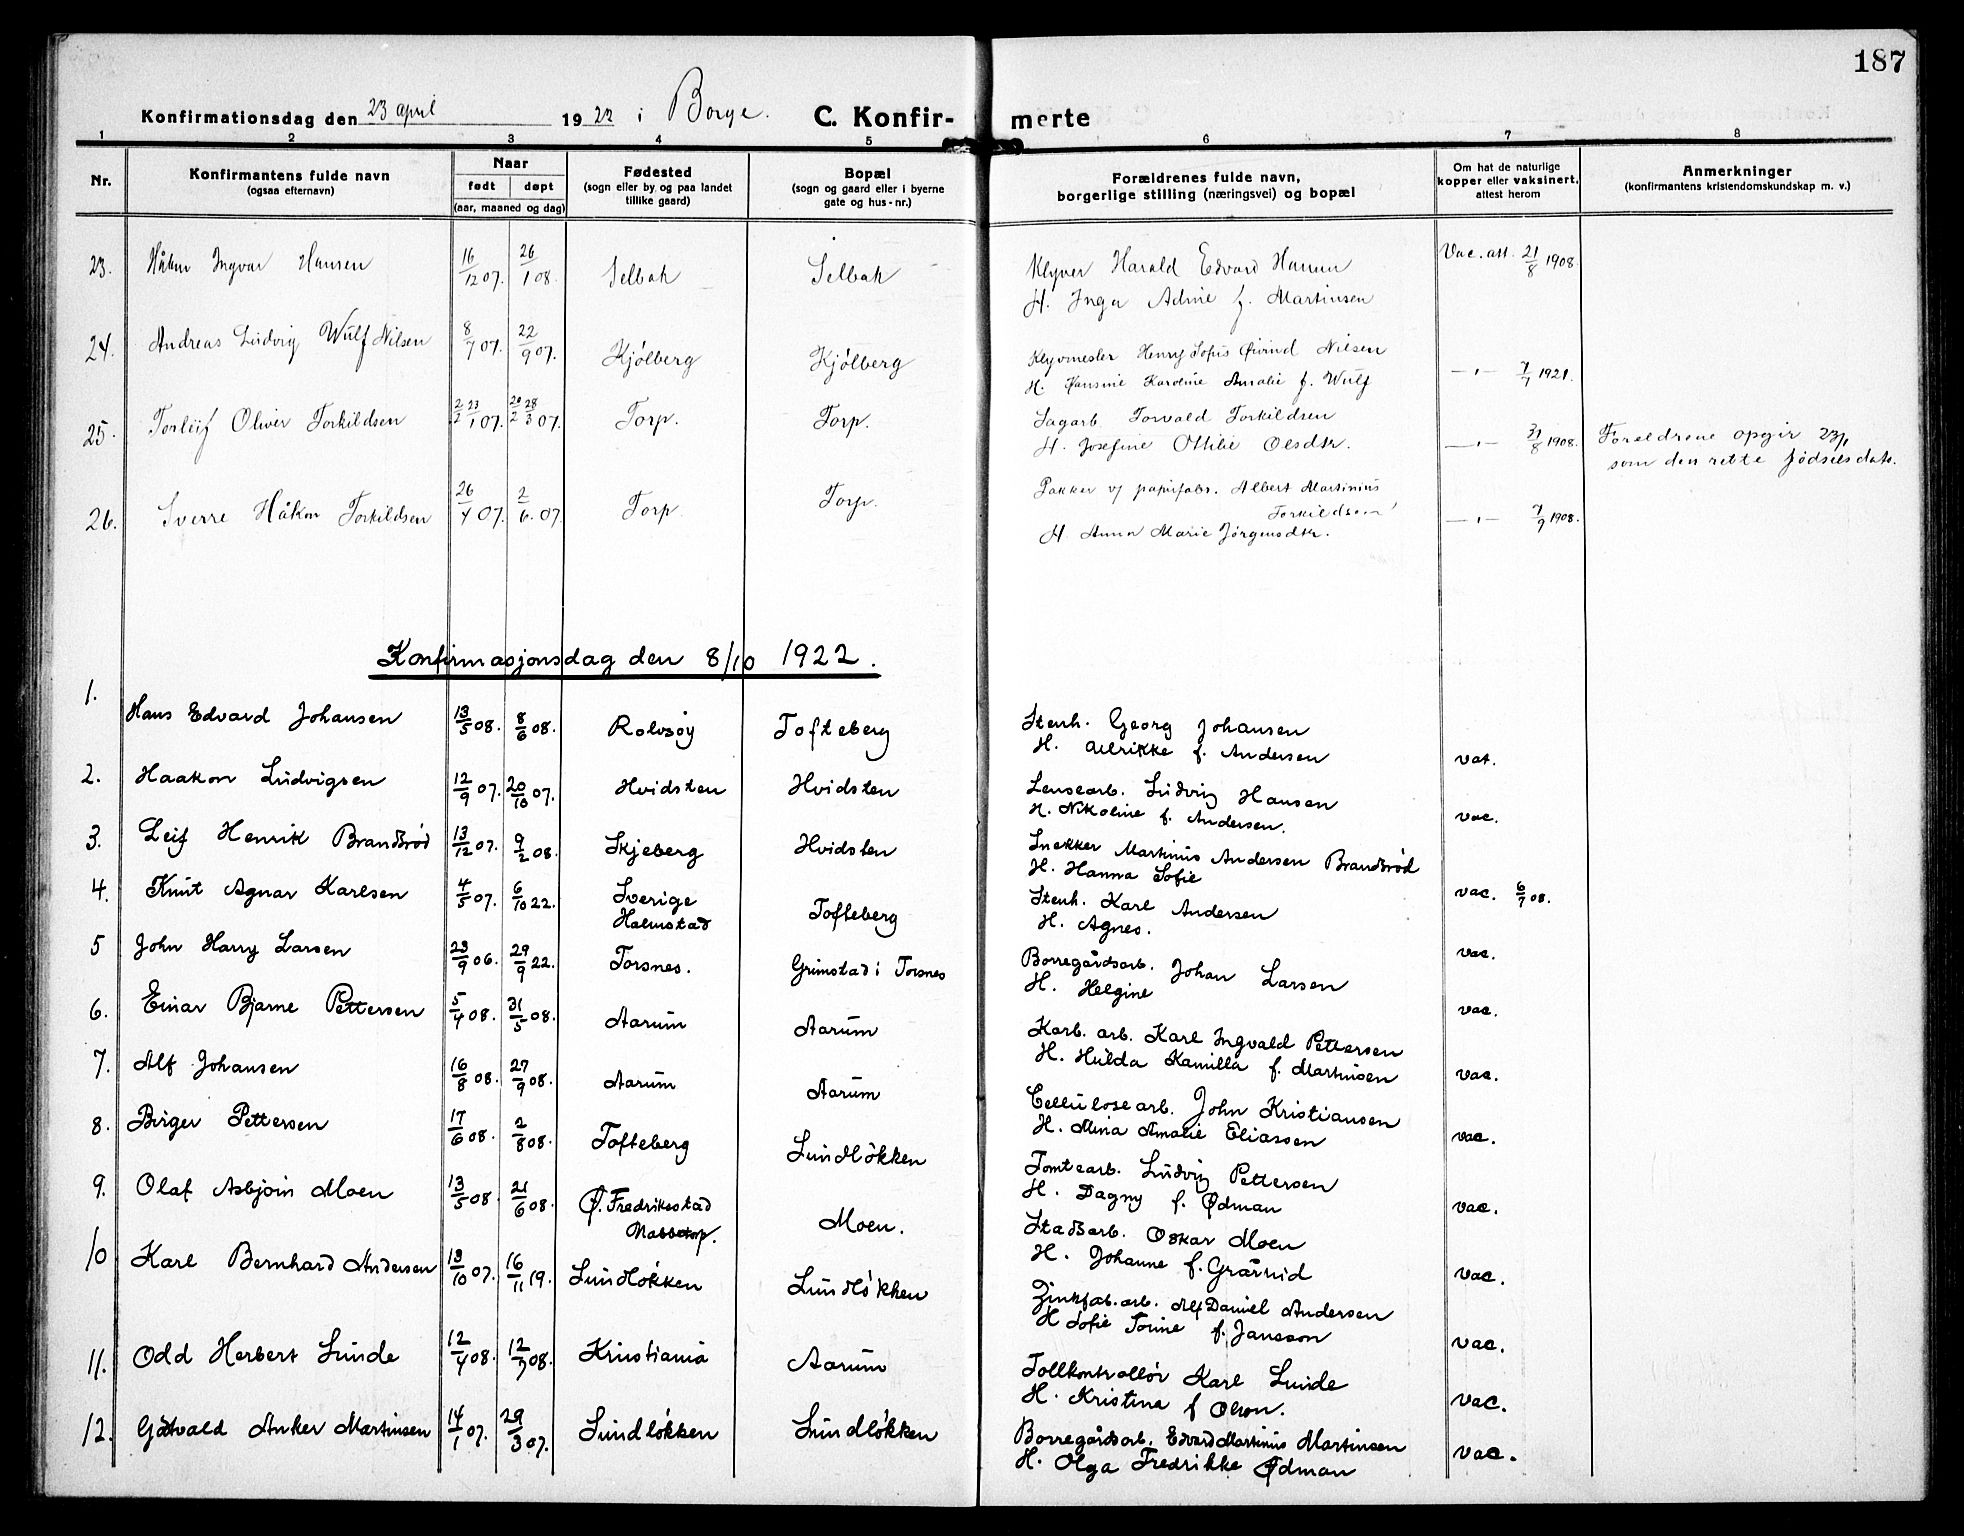 187
Konfirmationsdag den 23 april 1922 i Borge. C. Konfir- merte
1 2 3 4 5 6 7 8
Nr. Konfirmantens fulde navn (ogsaa efternavn) Naar født døpt (aar, maaned og dag) Fødested (sogn eller by og paa landet tillike gaard) Bopæl (sogn og gaard eller i byerne gate og hus-nr.) Forældrenes fulde navn, borgerlige stilling (næringsvei) og bopæl Om hat de naturlige kopper eller vaksinert, attest herom Anmerkninger (konfirmantens kristendomskundskap m. v.)
23. Håkon Ingvar Hansen 16/12 07. 26/1 08. Selbak Selbak Klyver Harald Edvard Hansen Vac. att. 21/8 1908.
H. Inga Adine f. Martinsen
24. Andreas Ludvig Wulf Nilsen 8/7 07. 22/9 07. Kjölberg Kjölberg Klyvmester Henry Sofus Øivind Nilsen
H. Hansine Karoline Amalie f. Wulf —"— 7/7 1921.
25. Torleif Oliver Torkildsen 2/2 23/1 07. 20/2 28/3 07. Torp. Torp. Sagarb Torvald Torkildsen
H. Josefine Ottilie Olsdtr. —"— 31/8 1908. Foreldrene opgir 23/1
som den rette fødselsdato.
26. Sverre Håkon Torkildsen 26/4 07. 2/6. 07. Torp Torp. Pakker v/ papirfabr. Albert Martinius
Torkildsen —"— 7/9 1908.
H. Anna Marie Jörgensdtr.
Konfirmasjonsdag den 8/10 1922.
1. Hans Edvard Johansen 13/5 08. 8/6 08. Rolvsøy Tofteberg Stenh. Georg Johansen
H. Ulrikke f. Andersen vat.
2. Haakon Ludvigsen 12/9 07. 20/10 07. Hvidsten Hvidsten Lensearb. Ludvig Hansen
H. Nikoline f. Andersen. vac.
3. Leif Henrik Brandsrød 13/12 07. 9/2 08. Skjeberg Hvidsten Snekker Martinius Andersen Brandsrød
H. Hanna Sofie vac. 6/7 08.
4. Knut Agnar Karlsen 4/5 07. 6/10 22. Sverige Tofteberg Stenh. Karl Andersen
Halmstad H. Agnes. vac.
5 John Harry Larsen 23/9 06. 29/9 22. Torsnes. Grimstad i Torsnes Borregårdsarb. Johan Larsen
H. Helgine vac.
6. Einar Bjarne Pettersen 5/4 08. 31/5 08. Aarum Aarum Karb. arb. Karl Ingvald Pettersen
H. Hulda Kamilla f. Martinsen vac.
7. Alf Johansen 16/8 08. 27/9 08. Aarum Aarum Cellulosearb. John Kristiansen
H. Mina Amalie Eliassen vac.
8. Birger Pettersen 17/6 08. 2/8 08. Tofteberg Lundløkken Tomtearb. Ludvig Pettersen
H. Dagny f. Ødman vac.
9. Olaf Asbjørn Moen 13/5 08. 21/6 08. Ø. Fredrikstad Moen. Stadsarb. Oskar Moen
Nabbetorp. H. Johanne f. vac.
10 Karl Bernhard Andersen 13/10 07. 16/11 19. Lundløkken Lundløkken Zinkfab.arb. Alf Daniel Andersen
H Sofie f. Jansson vac.
11. Odd Herbert Lunde 12/4 08. 12/7 08. Kristiania Aarum Tollkontrollør Karl Lunde
H. Kristina f Olson. vac.
12. Gotvald Anker Martinsen 14/1 07. 29/3 07. Lundløkken Lundløkken Borregårdsarb. Edvard Martinius Martinsen
H. Olga Fredrikke Ødman vac.